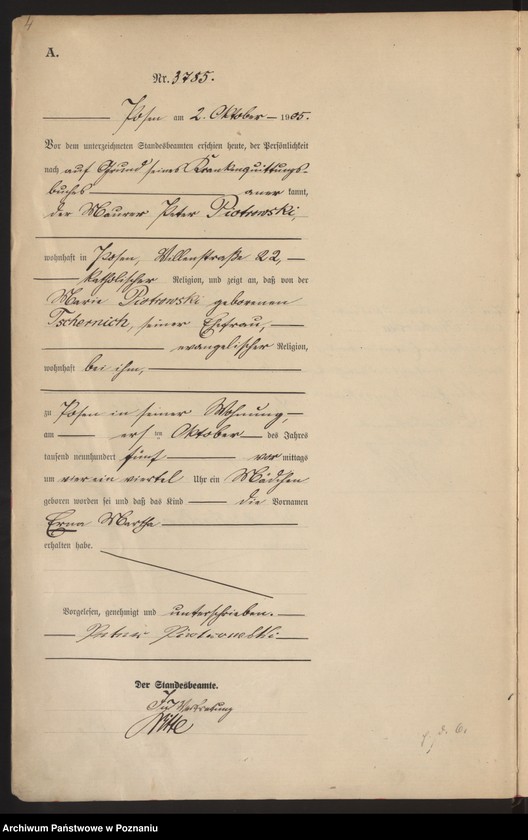 4
A.
Nr. 3785.
Posen am 2. Oktober 1905.
Vor dem unterzeichneten Standesbeamten erschien heute, der Persönlichkeit
nach auf Grund seines Krankenquittungs-
buches anerkannt,
der Maurer Peter Piotrowski,
wohnhaft in Posen, 22,
katholischer Religion, und zeigt an, daß von der
Marie Piotrowski geborenen
Tschernich, seiner Ehefrau,
evangelischer Religion,
wohnhaft bei ihm,
zu Posen in seiner Wohnung,
am ersten Oktober des Jahres
tausend neunhundert fünf vormittags
um vier ein viertel Uhr ein Mädchen
geboren worden sei und daß das Kind die Vornamen
Erna Martha
erhalten habe.
Vorgelesen, genehmigt und unterschrieben.
Peter Piotrowski
Der Standesbeamte.
In Vertretung
Archiwum Państwowe w Poznaniu